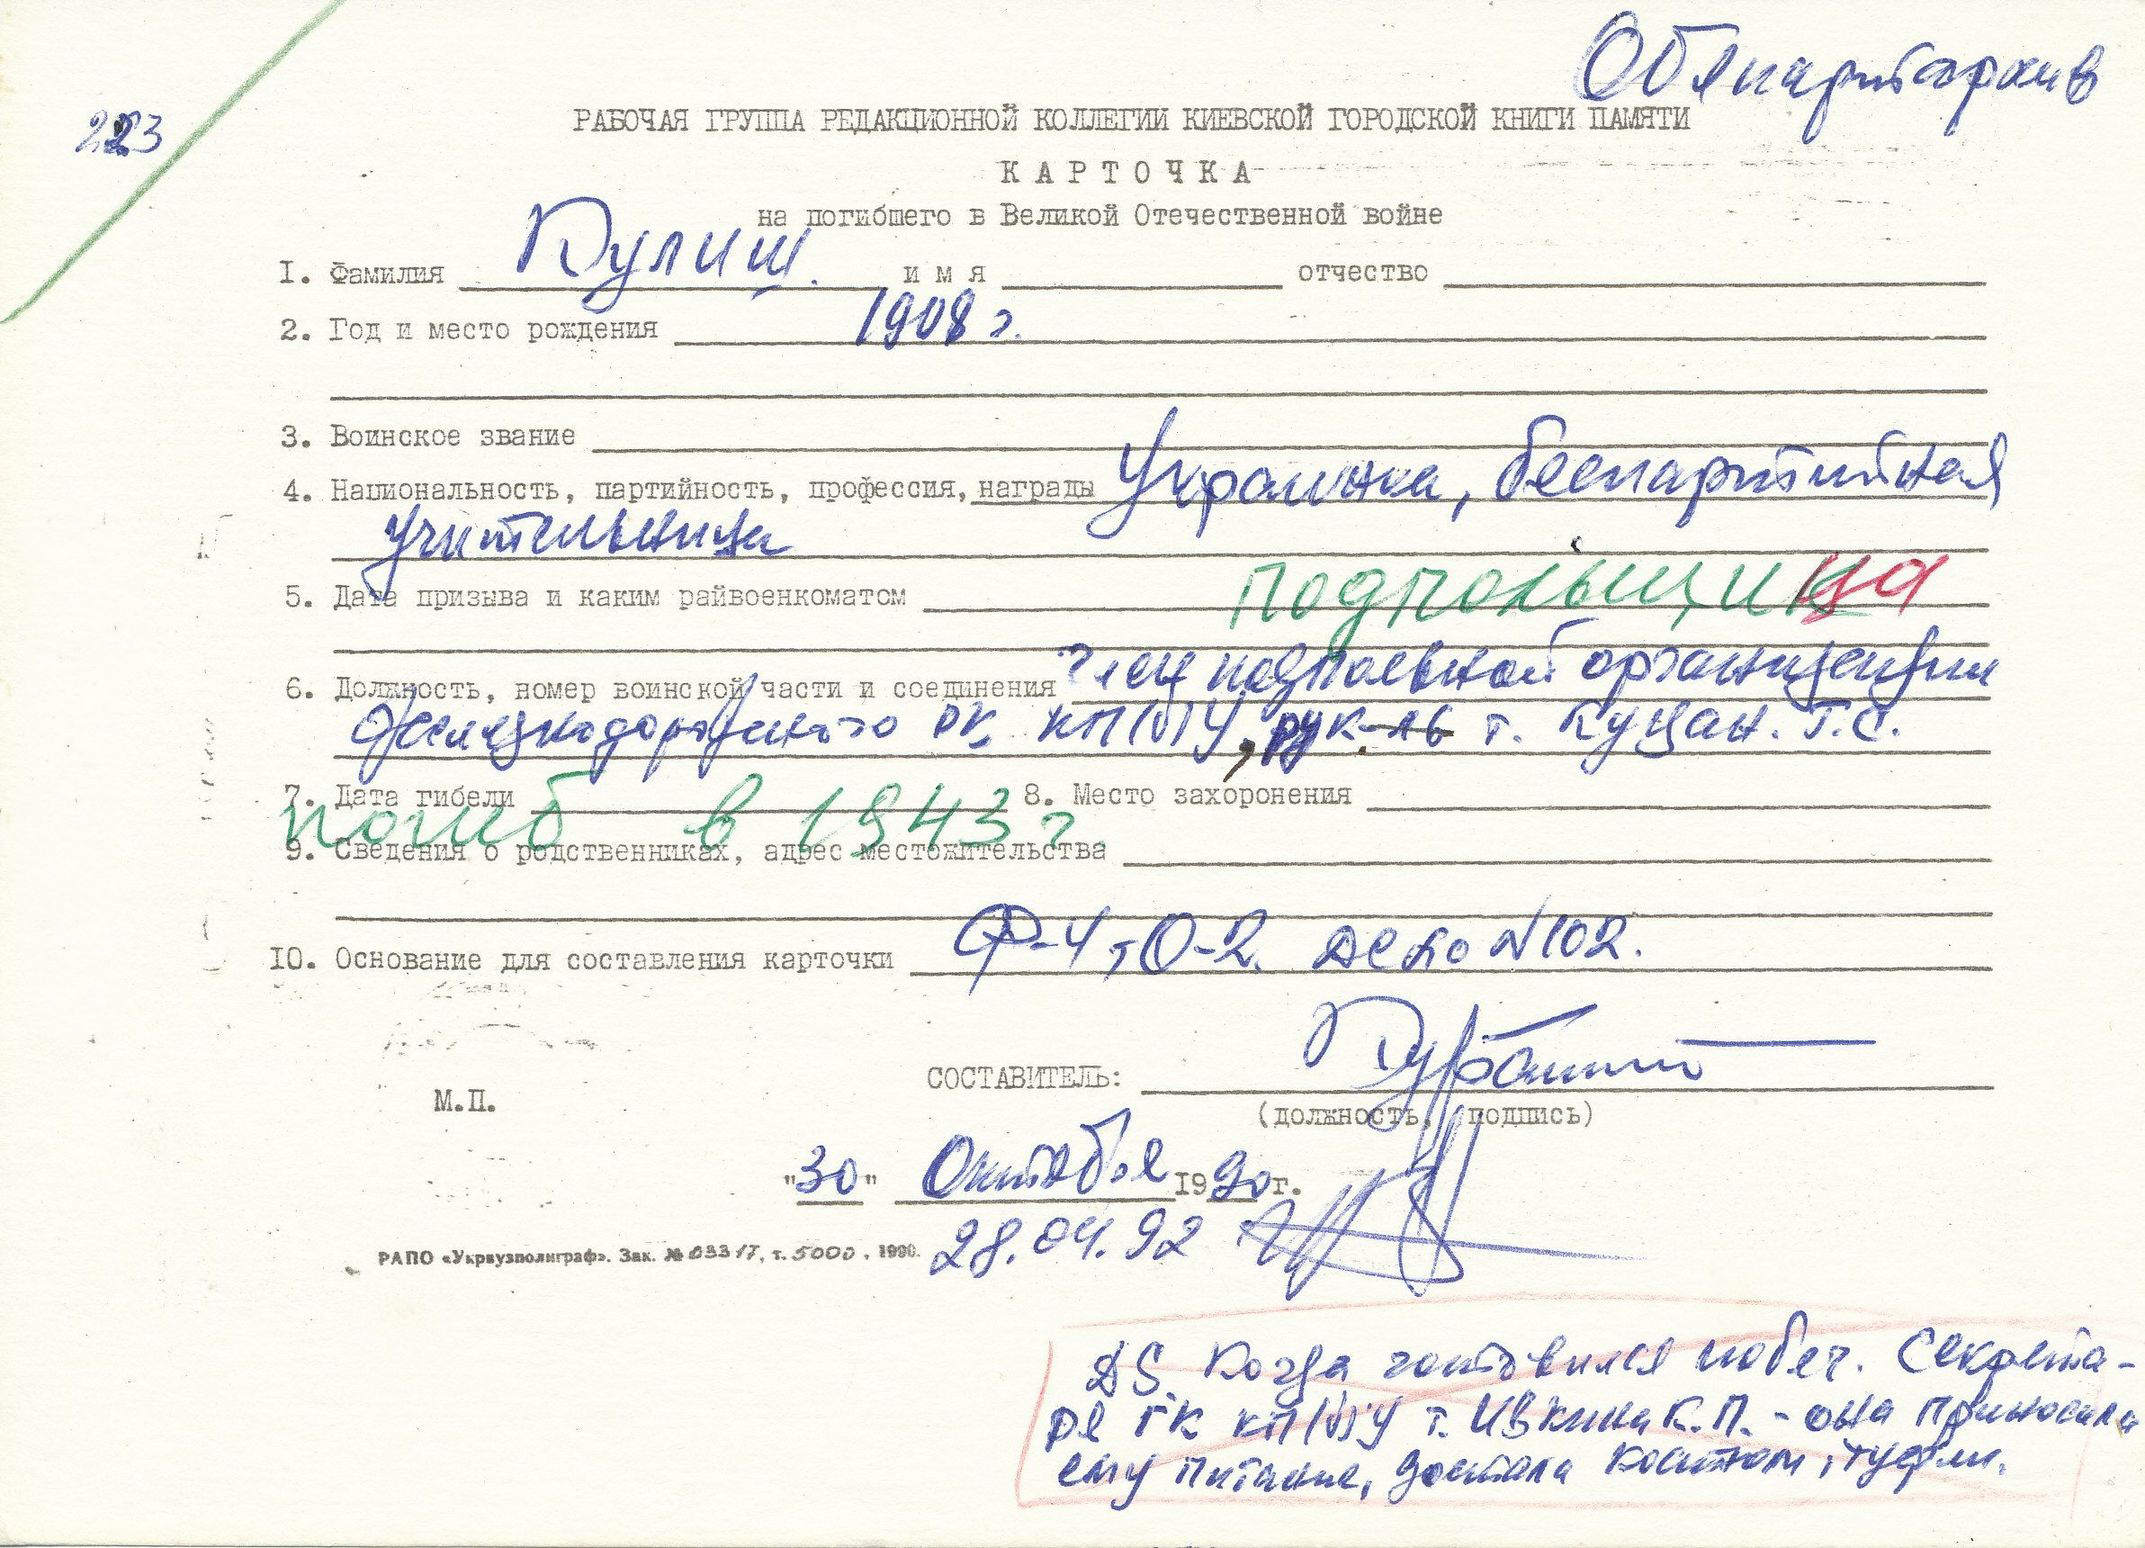 Облпартархив
223
РАБОЧАЯ ГРУППА РЕДАКЦИОННОЙ КОЛЛЕГИИ КИЕВСКОЙ ГОРОДСКОЙ КНИГИ ПАМЯТИ
КАРТОЧКА
на погибшего в Великой Отечественной войне
I. Фамилия Кулиш. имя отчество
2. Год и место рождения 1908 г.
3. Воинское звание
4. Национальность, партийность, профессия, награды Украинка, беспартийная
учительница
5. Дата призыва и каким райвоенкоматом подпольщица
6. Должность, номер воинской части и соединения член подпольной организации
Железнодорожного РК КП(б)У, рук-ль т. Куцан. Г.С.
7. Дата гибели 8. Место захоронения
погиб в 1943 г.
9. Сведения о родственниках, адрес местожительства
10. Основание для составления карточки Ф-4, О-2. дело N 102.
СОСТАВИТЕЛЬ:
М.П.
(должность, подпись)
"30" Октября 1990 г.
28.04.92
РАПО «Укрвузполиграф». Зак. № 03317, т. 5000, 1990.
Когда готовился побег. Секрета-
ря ГК КП(б)У т. Ивкина К.П. - она приносила
ему питание, достала костюм, туфли.